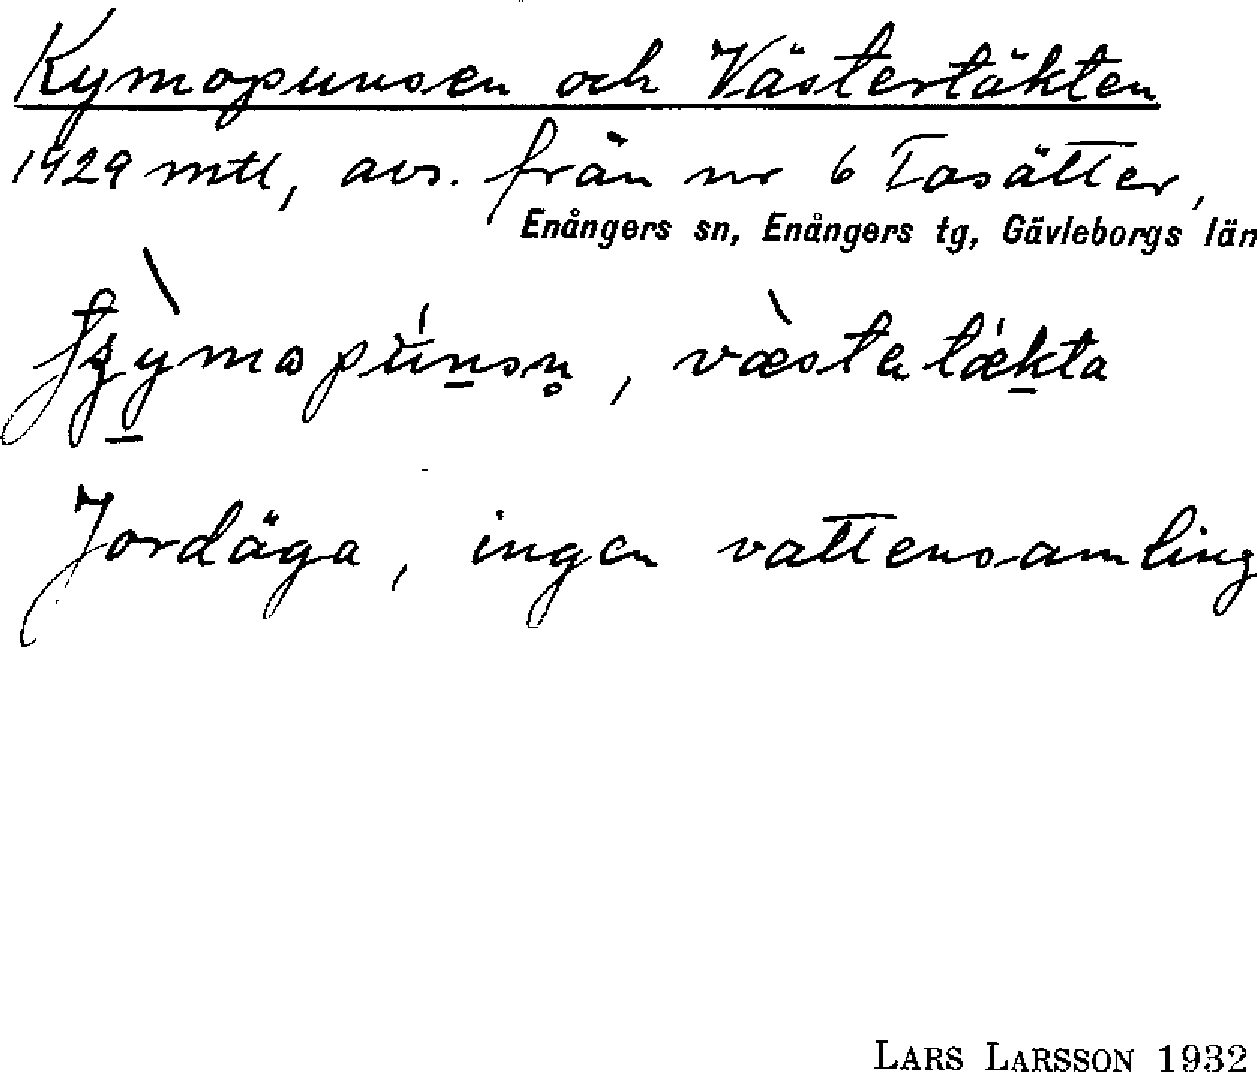 Kymopunsen och Västertäkten
1929 mtl, avs. från nr 6 Tosätter,
Enångers sn, Enångers tg, Gävleborgs län
væsta tækta
Jordäga, ingen vattensamling
LARS LARSSON 1932